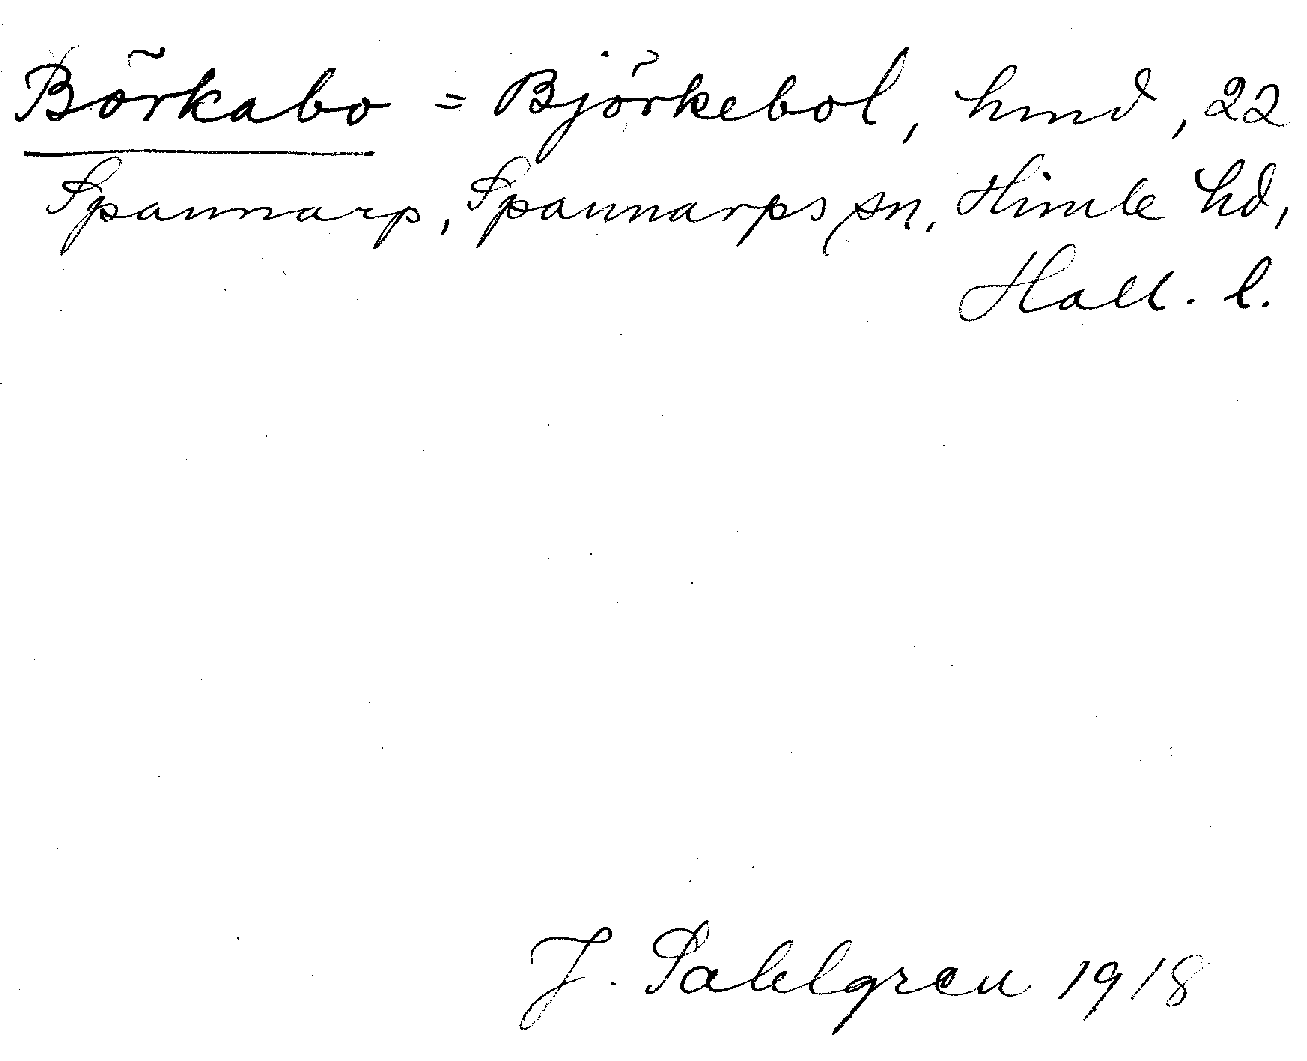 Börkabo = Björkebol, hmd, 22
Spannarp, Spannarps sn, Himle hd,
Hall. l.
J. Sahlgren 1918